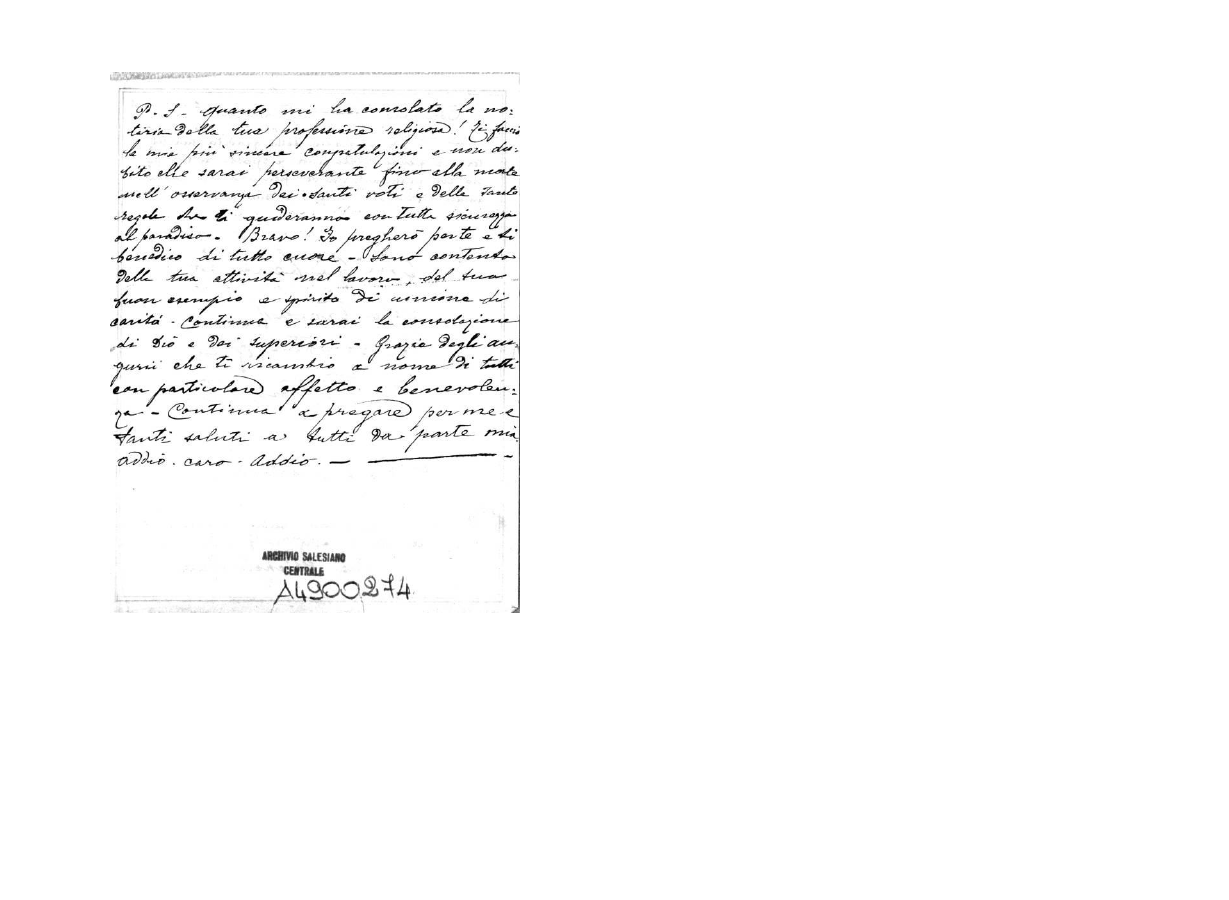 P. S - Quanto mi ha consolato la no:
tizia della tua professione religiosa! Ti faccio
le mie più sincere congratulazioni e non du:
bito che sarai perseverante fino alla morte
nell' osservanza dei santi voti e delle sante
regole che ti guideranno con tutta sicurezza
al paradiso - Bravo! Io pregherò per te e ti
benedico di tutto cuore - Sono contento
della tua attività nel lavoro, del tuo
buon esempio e spirito di unione di
carità - Continua e sarai la consolazione
di Dio e dei superiori - Grazie degli au,
gurii che ti ricambio a nome di tutti
con particolare affetto e benevolen:
za - Continua a pregare per me e
tanti saluti a tutti da parte mia
addio - caro - Addio. —
ARCHIVIO SALESIANO
CENTRALE
A4900274